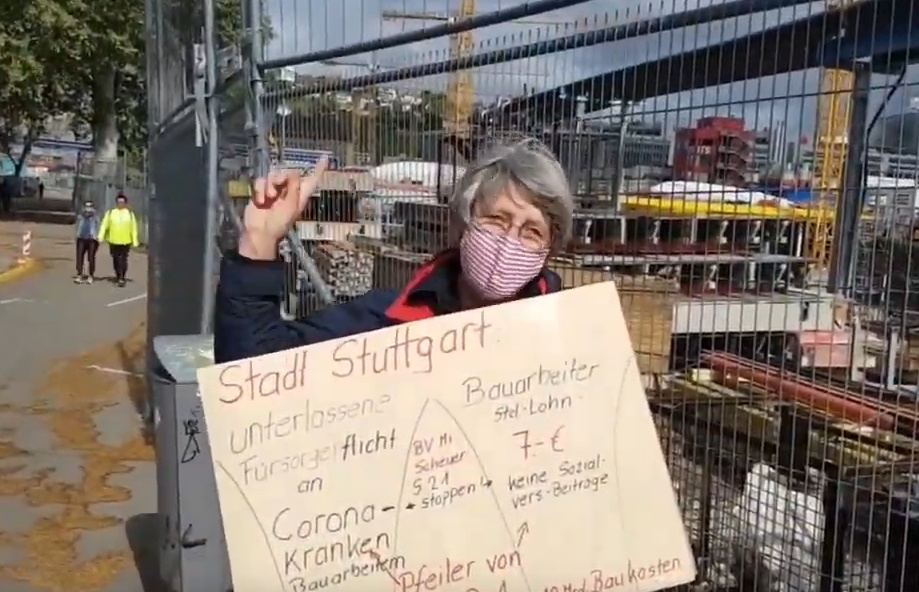 Stadt Stuttgart
unterlassene
Fürsorgeflicht
an
Corona-
Kranken
Bauarbeitern
BV Mi
Scheuer
S 21
stoppen
Bauarbeiter
Std-Lohn
7.-€
keine Sozial-
vers-Beiträge
Pfeiler von
Baukosten